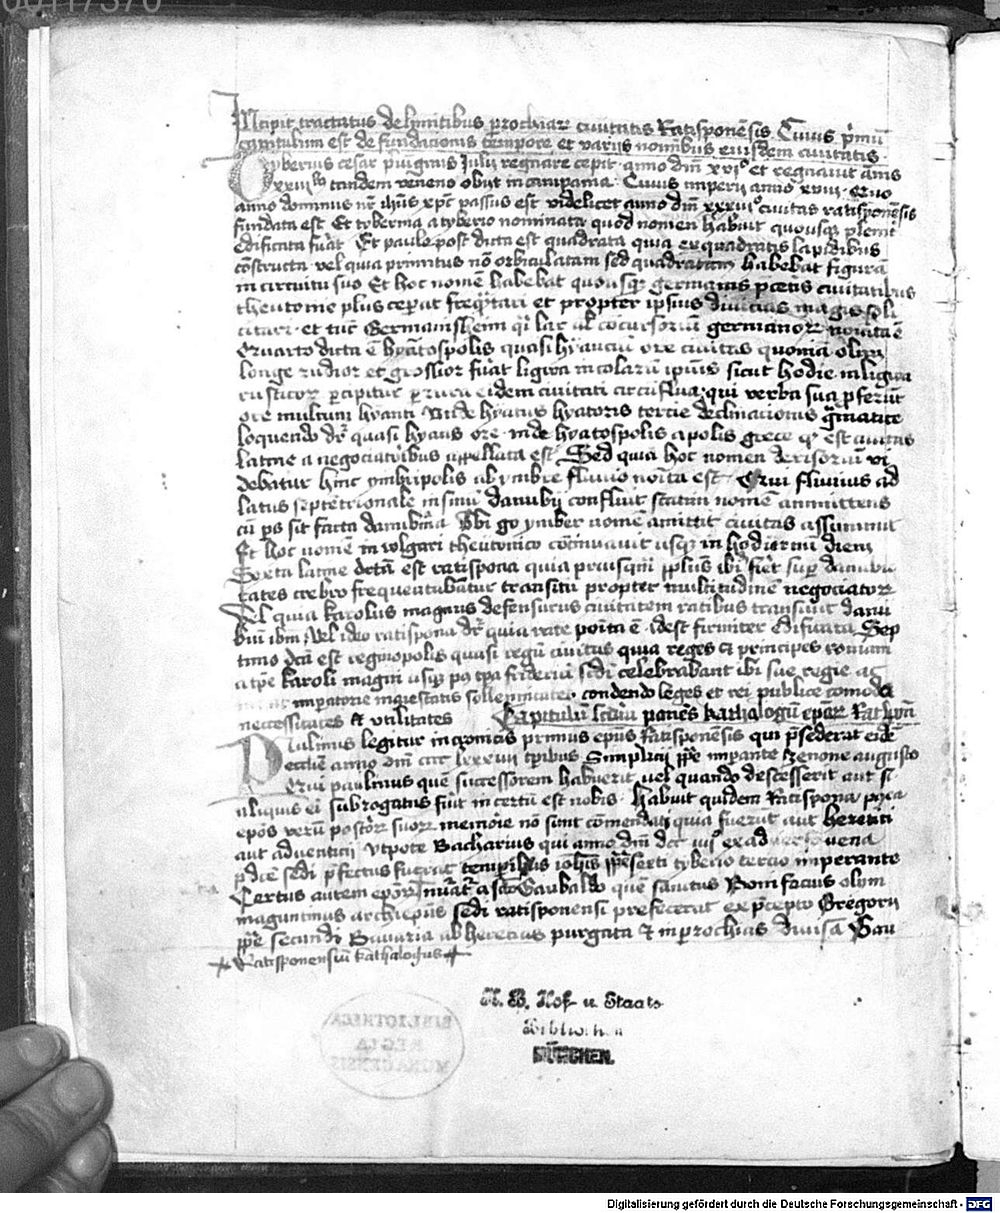 00117370
Incipit tractatus de limitibus prochiar civitatis Ratisponensis. Cuius pimu
capitulum est de fundacionis tempore et variis nominibus eiusdem civitatis
Tyberius cesar pivignus Julii regnare cepit anno dni xvi° et regnavit annis
xxiii tandem veneno obiit in campania. Cuius imperii anno xviii. quo
anno dominus nr ihus xpc passus est videlicet anno dni xxxiiii° civitas ratisponensis
fundata est Et tyberina a tyberio nominata quod nomen habuit quousq plenit
edificata fuat Et paulo post dicta est quadrata quia ex quadratis lapidibus
constructa vel quia primitus no orbiculatam sed quadratam habebat figura
in circuitu suo Et hoc nomen habebat quousq germanis pcetis civitatibus
theutonie plus ceperat freqntari et propter ipsius divicias magis soli
citari. et tuc Germanisheim
Quarto dicta e hyatospolis quasi hyancium ore civitas quoniam olim
longe rudior et grossior fuat ligwa incolaru ipius sicut hodie in ligwa
rusticor pcipitur eidem civitati circuflua qui verba sua pferut
ore multum hyanti Unde hyatus hyatoris tercie declinacionis gmatice
loquendo dr quasi hyans ore. inde hyatospolis a polis grece q est civitas
latine a negociatoribus appellata est Sed quia hoc nomen derisoriu vi
debatur hinc ymbripolis ab ymbre fluvio noiata est Qui fluvius ad
latus septetrionale in sinu danubii confluit statim nomen ammittens
cu ps sit facta danubina Ubi go ymber nomen amittit civitas assummit
Et hoc nomen in volgari theutonico continuavit usq in hodiernu diem
Sexto latine dicta est ratispona quia priusqm ibi fieret sup danubiu
rates crebro frequentabatur transitu propter multitudinem negociator
Vel quia karolus magnus defensurus civitatem ratibus transivit danu
bium ibm. Vel ideo ratispona dr quia rate poita e. idest firmiter edificata Sep
timo dca est regiopolis quasi regu civitas quia reges et principes romani
a tpe karoli magni usq ad tpa friderici sedi celebrabant ibi sue regie ac
impatorie maiestatis sollemnitates. condendo leges et rei publice comoda
neccessitates et utilitates Capitulu scdm ponens kathalogu epor Ratispon
Paulinus legitur in cronicis primus epus Ratisponensis qui psederat eide
ecclie anno dni cccc lxxxvii tpibus Simplicii ppe impante Zenone augusto
Qui paulinus que successorem habuerit vel quando descesserit aut si
aliquis ei subrogatus fuit incertu est nobis. Habuit quidem Ratispona pca
epos veru pastor suor memorie no sunt comendati quia fuerut aut heretici
aut adventicii Utpote Bacharius qui anno dni dcc iiii° ex adverso vena
pdce sedi pfectus fuerat temporibus iohis ppe sexti tyberio tercio imperante
Certus autem epor numerus a sco Gaubaldo que sanctus Bonifacius olim
maguntinus archiepus sedi ratisponensi prefecerat ex pcepto Gregorii
ppe secundi Bavaria ab heretics purgata et in prochias divisa Gau
Ratisponensiu kathalogus
K. B. Hof u. Staats
Bibliothek
MÜNCHEN.
BIBLIOTHECA
REGIA
MONACENSIS
Digitalisierung gefördert durch die Deutsche Forschungsgemeinschaft - DFG